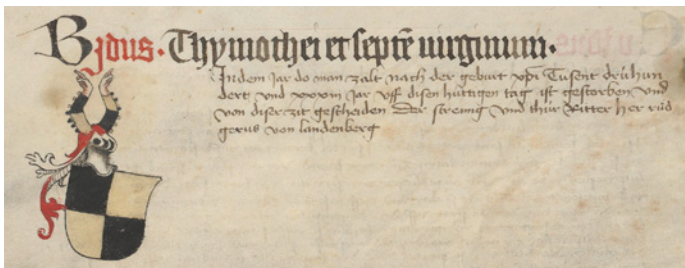 B Jdus · Thymothei et septē uirginum ·
Jn dem jar do man zalt nach der geburt xp̄i Tusent drühun
dert vnd xxxiij jar vff disen hüttigen tag ist gestorben vnd
von diser zit gescheiden Der streing vnd thür Ritter her rüd
gerus von landenberg